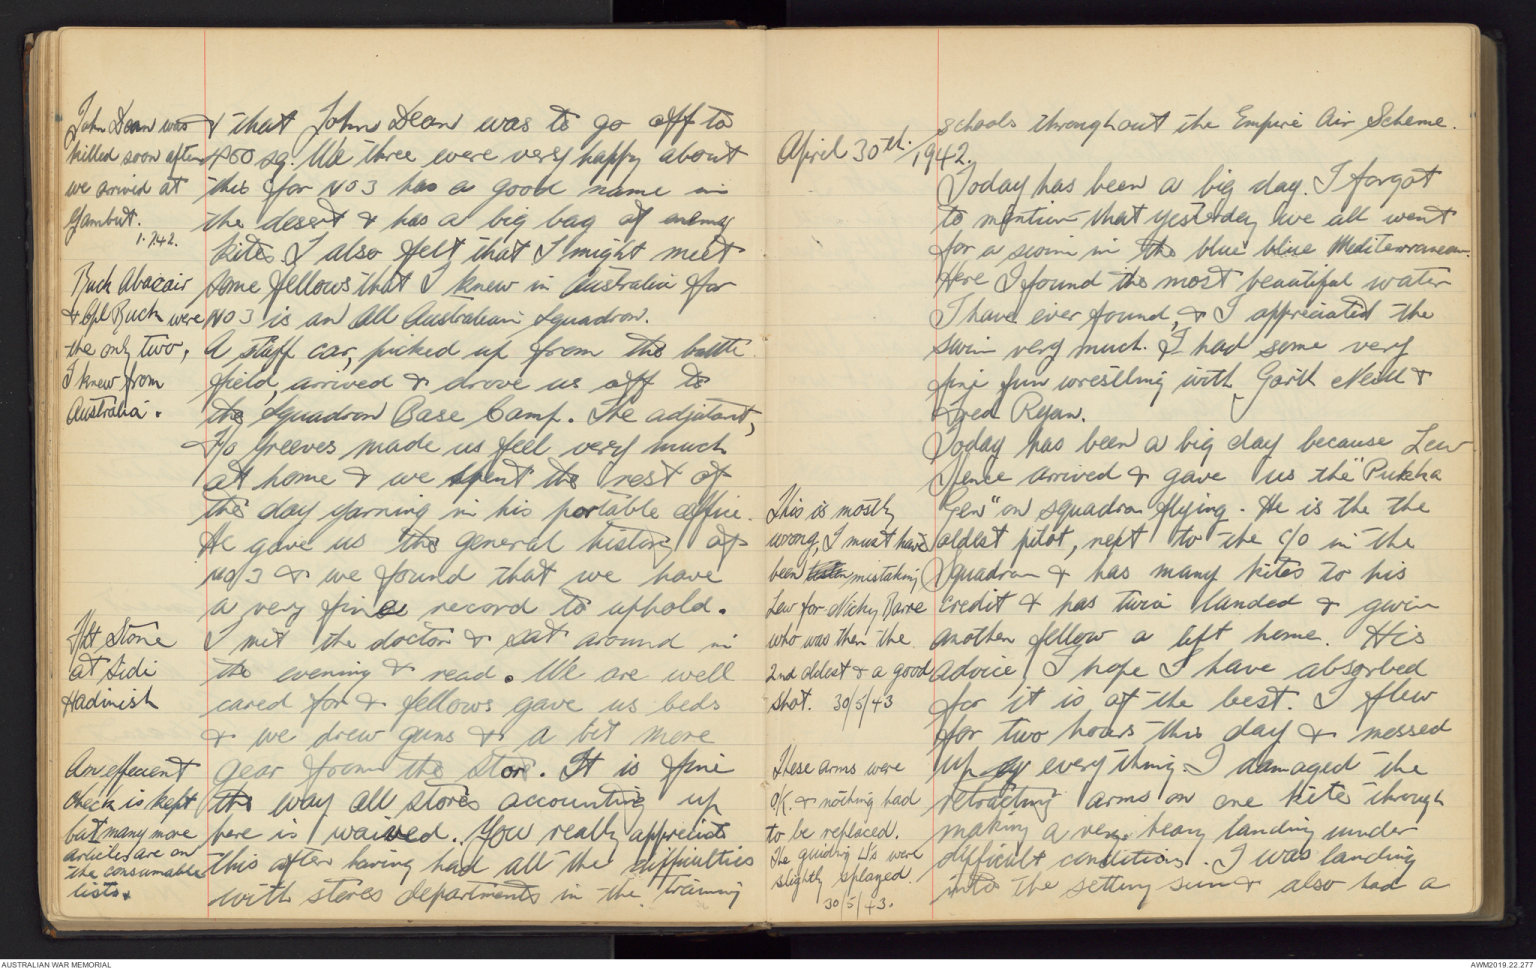 John Dean was
killed soon after
we arrived at
Gambut.
1.7.42.
Buck Abacair
& Cpl Buch were
the only two,
I knew from
Australia.
Flt Store
at Sidi
Hadinish
An efficient
check is kept
but many more
articles are on
the consumable
lists.
& that John Dean was to go off to
450 sq. We three were very happy about
this for NO 3 has a good name in
the desert & has a big bag of enemy
kites. I also felt that I might meet
some fellows that I knew in Australia for
NO 3 is an All Australian Squadron.
A staff car, picked up from the battle
field, arrived & drove us off to
the Squadron Base Camp. The adjutant,
F/o Greeves made us feel very much
at home & we spent the rest of
the day yarning in his portable office.
He gave us the general history of
NO 3 & we found that we have
a very fine record to uphold.
I met the doctor & sat around in
the evening & read. We are well
cared for & fellows gave us beds
& we drew guns & a bit more
gear from the Store. It is fine
the way all stores accounting up
here is waived. You really appreciate
this after having had all the difficulties
with stores departments in the training
schools throughout the Empire Air Scheme.
April 30th. 1942.
Today has been a big day. I forgot
to mention that yesterday we all went
for a swim in the blue blue Mediterranean.
Here I found the most beautiful water
I have ever found, & I appreciated the
swim very much. I had some very
fine fun wrestling with Garth Neill &
Fred Ryan.
Today has been a big day because Lew
Spence arrived & gave us the "Pukka
Gen" on squadron flying. He is the the
oldest pilot, next to the C/O in the
Squadron & has many kites to his
credit & has twice landed & given
another fellow a lift home. His
advice, I hope I have absorbed
for it is of the best. I flew
for two hours this day & messed
up everything. I damaged the
retracting arms on one kite through
making a very heavy landing under
difficult conditions. I was landing
into the setting sun & also had a
This is mostly
wrong, I must have
been mistaking
Lew for Nicky Barre
who was then the
2nd oldest & a good
shot. 30/5/43
These arms were
O/K. & nothing had
to be replaced.
The guiding U's were
slightly splayed
30/5/43.
AUSTRALIAN WAR MEMORIAL
AWM2019.22.277